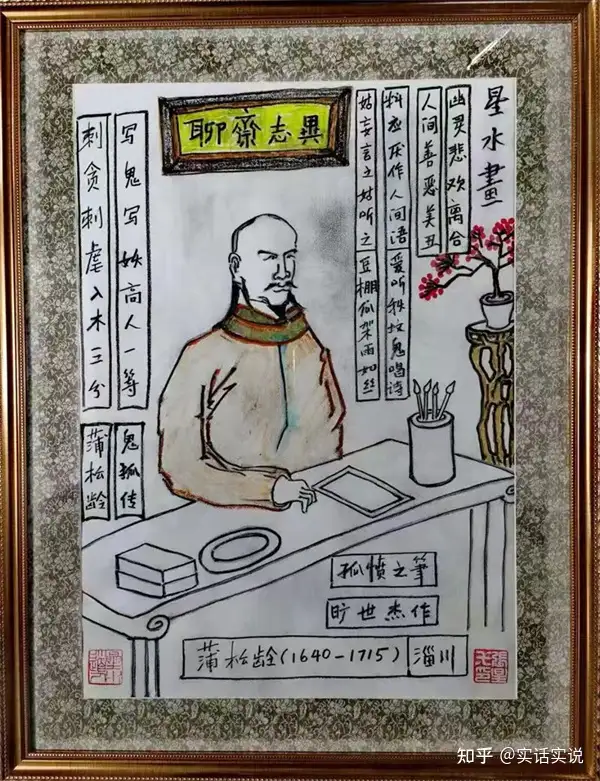 聊齋志異
星水畫
幽灵悲欢离合
人间善恶美丑
料应厌作人间语 爱听秋坟鬼唱诗
姑妄言之姑听之 豆棚瓜架雨如丝
写鬼写妖高人一等
刺贪刺虐入木三分
鬼狐传
蒲松龄
孤愤之筆
旷世杰作
蒲松龄(1640-1715) 淄川
知乎 @实话实说